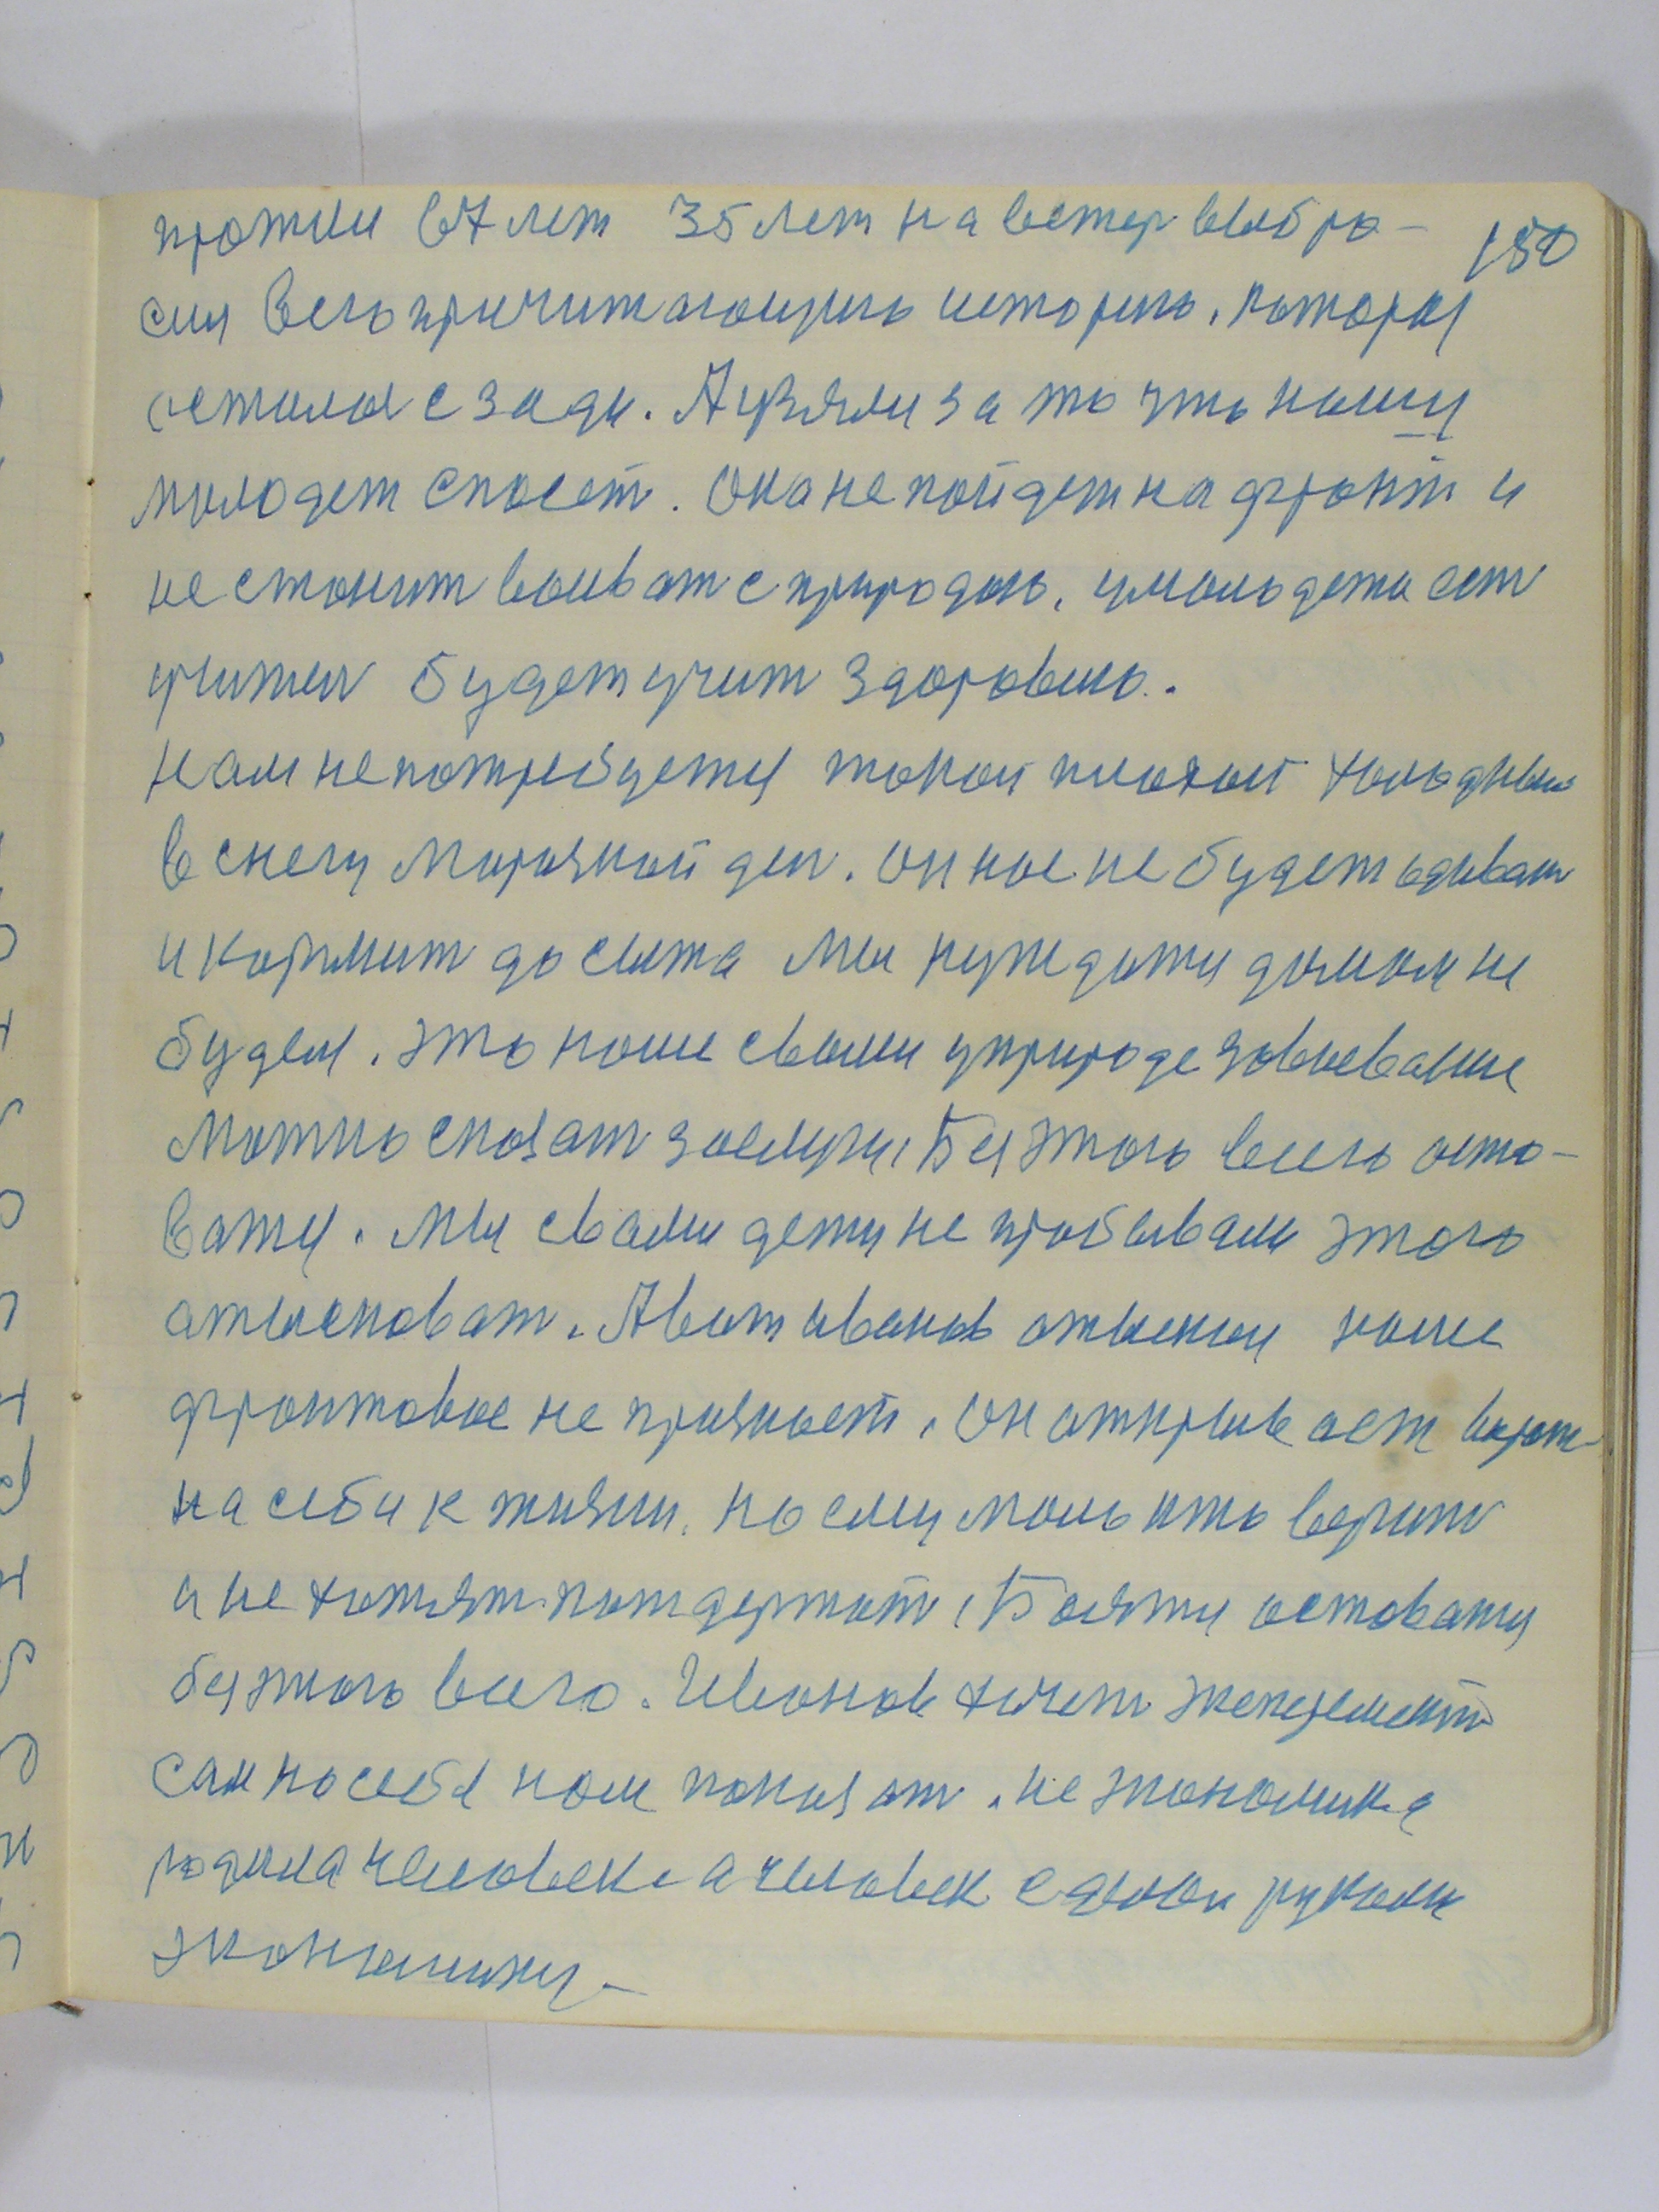 прожил 67 лет 35 лет на ветер выбро-
150
сил всю причитающую историю. которая
осталас сзади. А взяли за то что нашу
молодет спасет. Она не пойдет на фронт и
не станит воиват с природою. у молодежи ест
учител будет учит здоровию.
Нам не потребуется такой плохой холодным
в снегу морозной ден. он нас не будет одеват
и кормит до сыта Мы нуждатця домам не
будем. это наше свами у природе завоевание
Можно сказат заслуги, Без этого всего оста-
ватця. Мы свами дети не пробывали этого
атыскават. А вот иванов атыскал наше
фронтовое не признает. Он открывает
на себи к жизни. но ему мало кто верит
и не хотят потдержат, Боятця оставатця
без этого всего. Иванов хочет экскремент
сам на себе нам показат. не экономика
родила человека а человек своими руками
экономику-